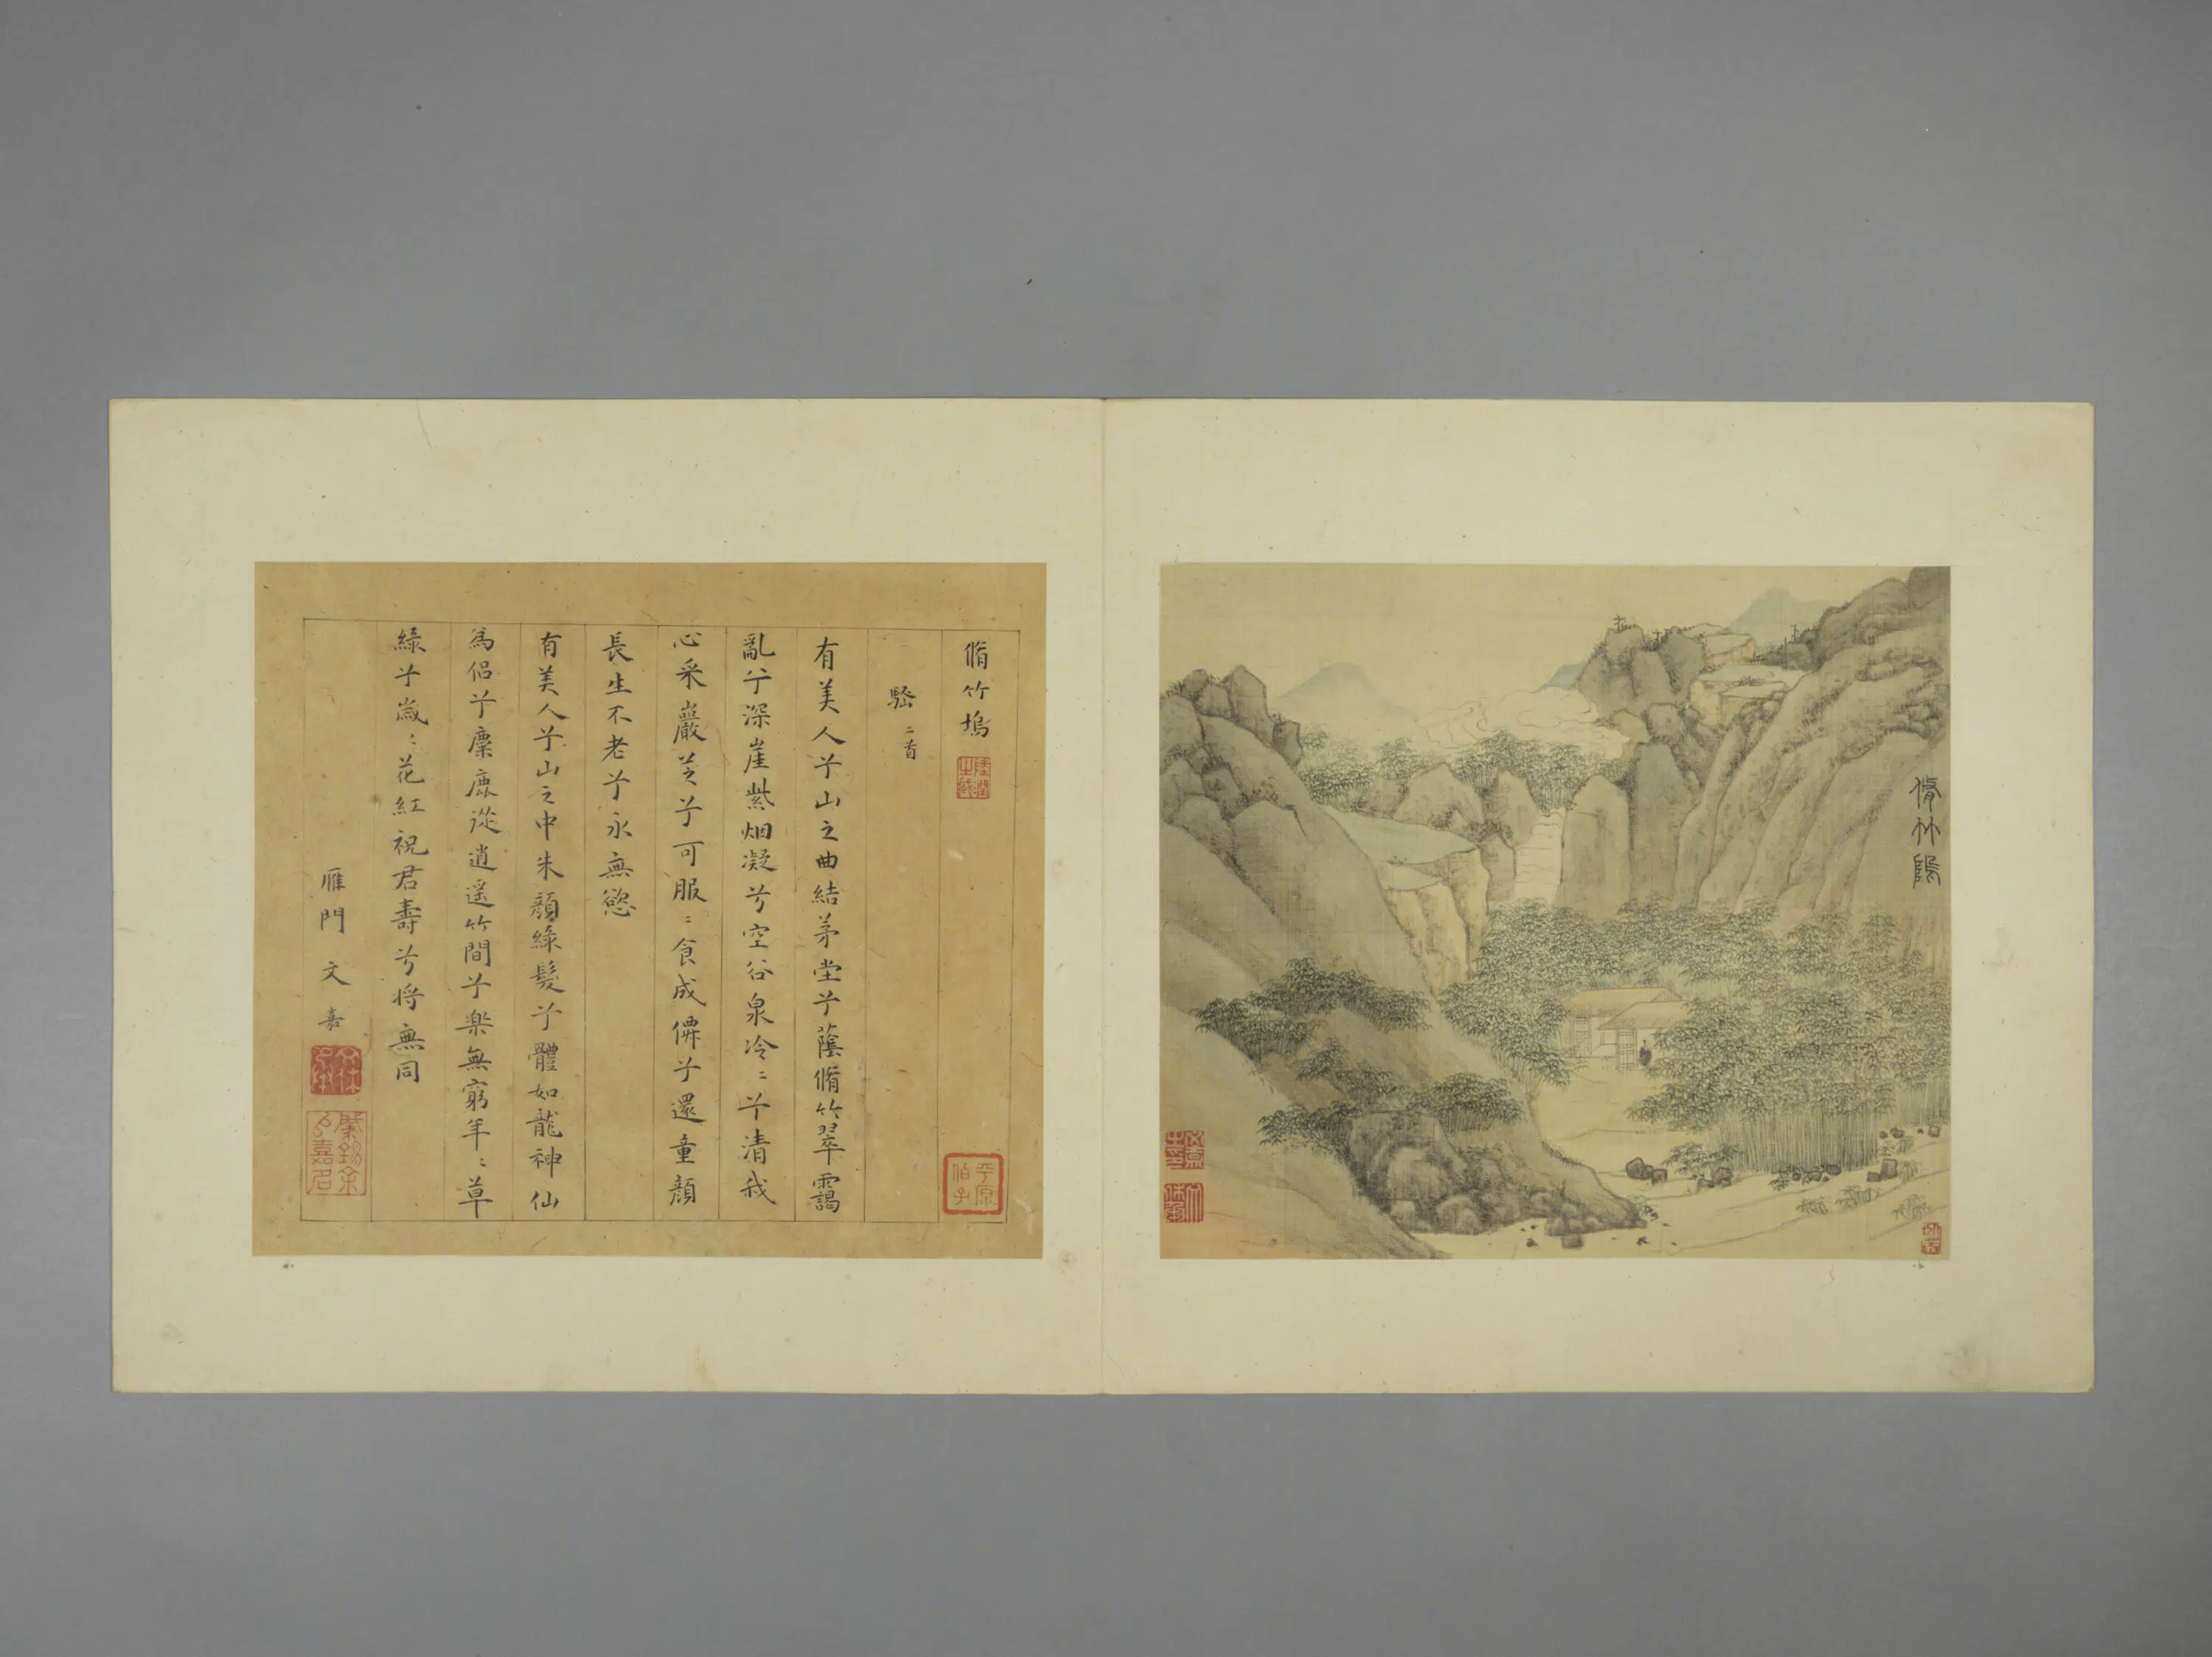 脩竹隖
脩竹塢
騷二首
有美人兮山之曲結茅堂兮蔭脩竹翠靄
亂兮深崖紫烟凝兮空谷泉冷〻兮清我
心采巖芝兮可服〻食成僊兮還童顏
長生不老兮永無慾
有美人兮山之中朱顏綠髮兮體如龍神仙
為侣兮麋鹿從逍遙竹間兮樂無窮年〻草
綠兮歲〻花紅祝君壽兮將無同
雁門文嘉
平原伯子
肇錫余以嘉名